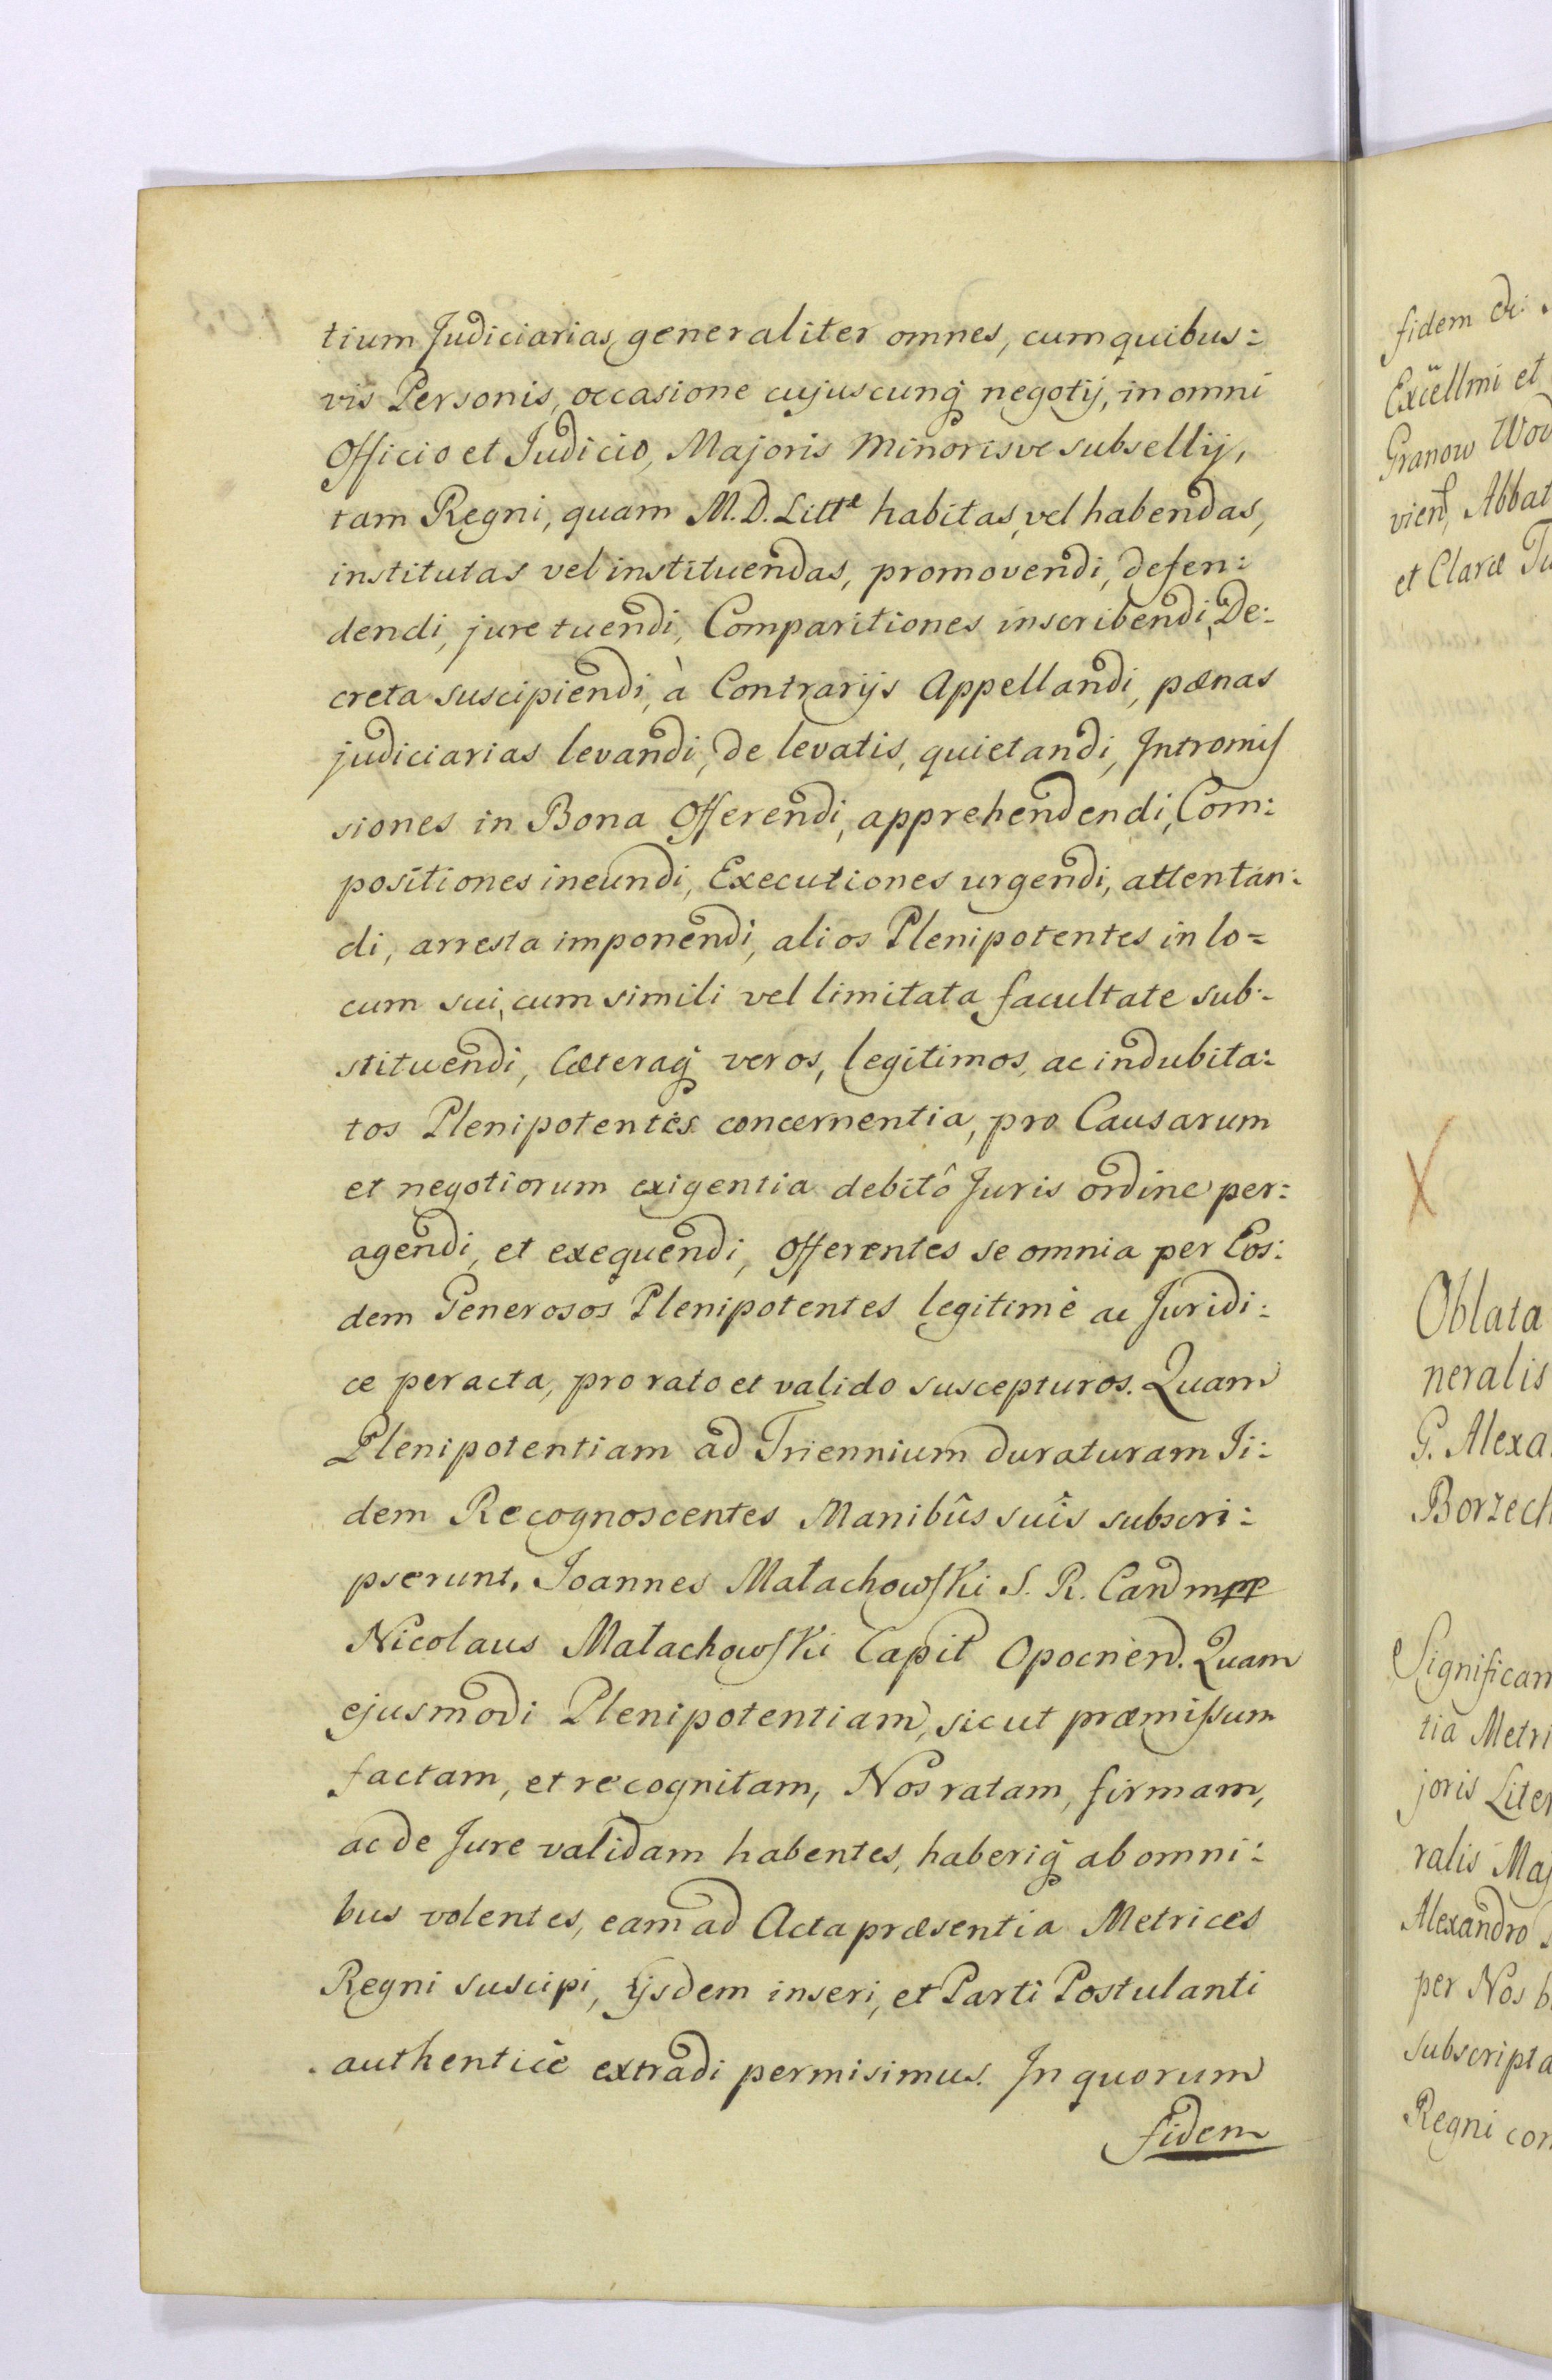 tium Judiciarias, generaliter omnes, cum quibus:
vis Personis, occasione cujuscunq; negotij, in omni
Officio et Judicio, Majoris Minorisve subsellij,
tam Regni, quam M. D. Litt.æ habitas, vel habendas,
institutas vel instituendas, promovendi, defen:
dendi, jure tuendi, Comparitiones inscribendi, De:
creta suscipiendi, à Contrarijs Appellandi, pœnas
judiciarias levandi, de levatis, quietandi, Intromis
siones in Bona Offerendi, apprehendendi, Com:
positiones ineundi, Executiones urgendi, attentan:
di, arresta imponendi, alios Plenipotentes in lo=
cum sui, cum simili vel limitata facultate sub:
stituendi, Cæteraq; veros, legitimos, ac indubita:
tos Plenipotentes concernentia, pro Causarum
et negotiorum exigentia debitô Juris ordine per:
agendi, et exequendi, Offerentes se omnia per Eos:
dem Generosos Plenipotentes legitimè ac Juridi:
ce peracta, pro rato et valido suscepturos. Quam
Plenipotentiam ad Triennium duraturam Ii:
dem Recognoscentes Manibûs suîs subscri:
pserunt. Joannes Małachowski S. R. Cand mpp
Nicolaus Małachowski Capit Opocnen. Quam
ejusmodi Plenipotentiam, sicut præmissum
factam, et recognitam, Nos ratam, firmam,
ac de Jure validam habentes, haberiq; ab omni:
bus volentes, eam ad Acta præsentia Metrices
Regni suscipi, ijsdem inseri, et Parti Postulanti
authenticè extradi permisimus. In quorum
fidem
fidem
Excellmi et
Granow Wod
vien, Abbat
et Claræ Tu
Oblata
neralis
G. Alexa
Borzech
Significam
tia Metri
joris Liter
ralis Maj
Alexandro
per Nos b
subscripta
Regni con